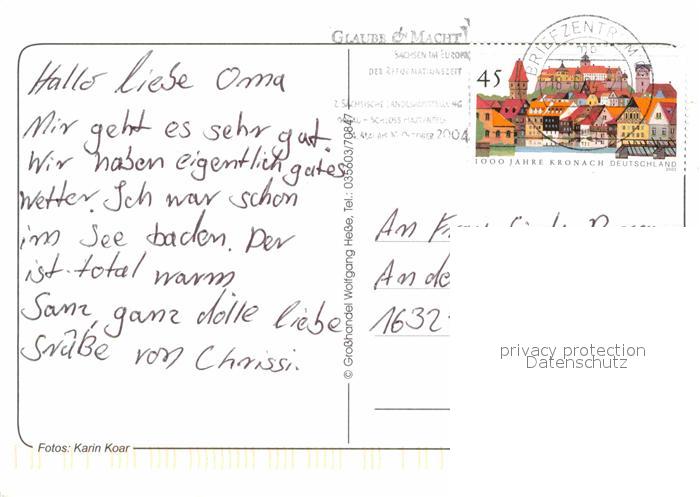 GLAUBE & MACHT
SACHSEN IM EUROPA
DER REFORMATIONSZEIT
2. SÄCHSISCHE LANDESAUSSTELLUNG
TORGAU - SCHLOSS HARTENFELS
24. MAI BIS 10. OKTOBER 2004
BRIEFZENTRUM
45
1000 JAHRE KRONACH DEUTSCHLAND
2003
Hallo liebe Oma
Mir geht es sehr gut.
Wir haben eigentlich gutes
Wetter. Ich war schon
im See baden. Der
ist total warm
Ganz, ganz dolle liebe
Grüße von Chrissi.
An
An de
1632
© Großhandel Wolfgang Heße, Tel.: 035603/70847
Fotos: Karin Koar
privacy protection
Datenschutz